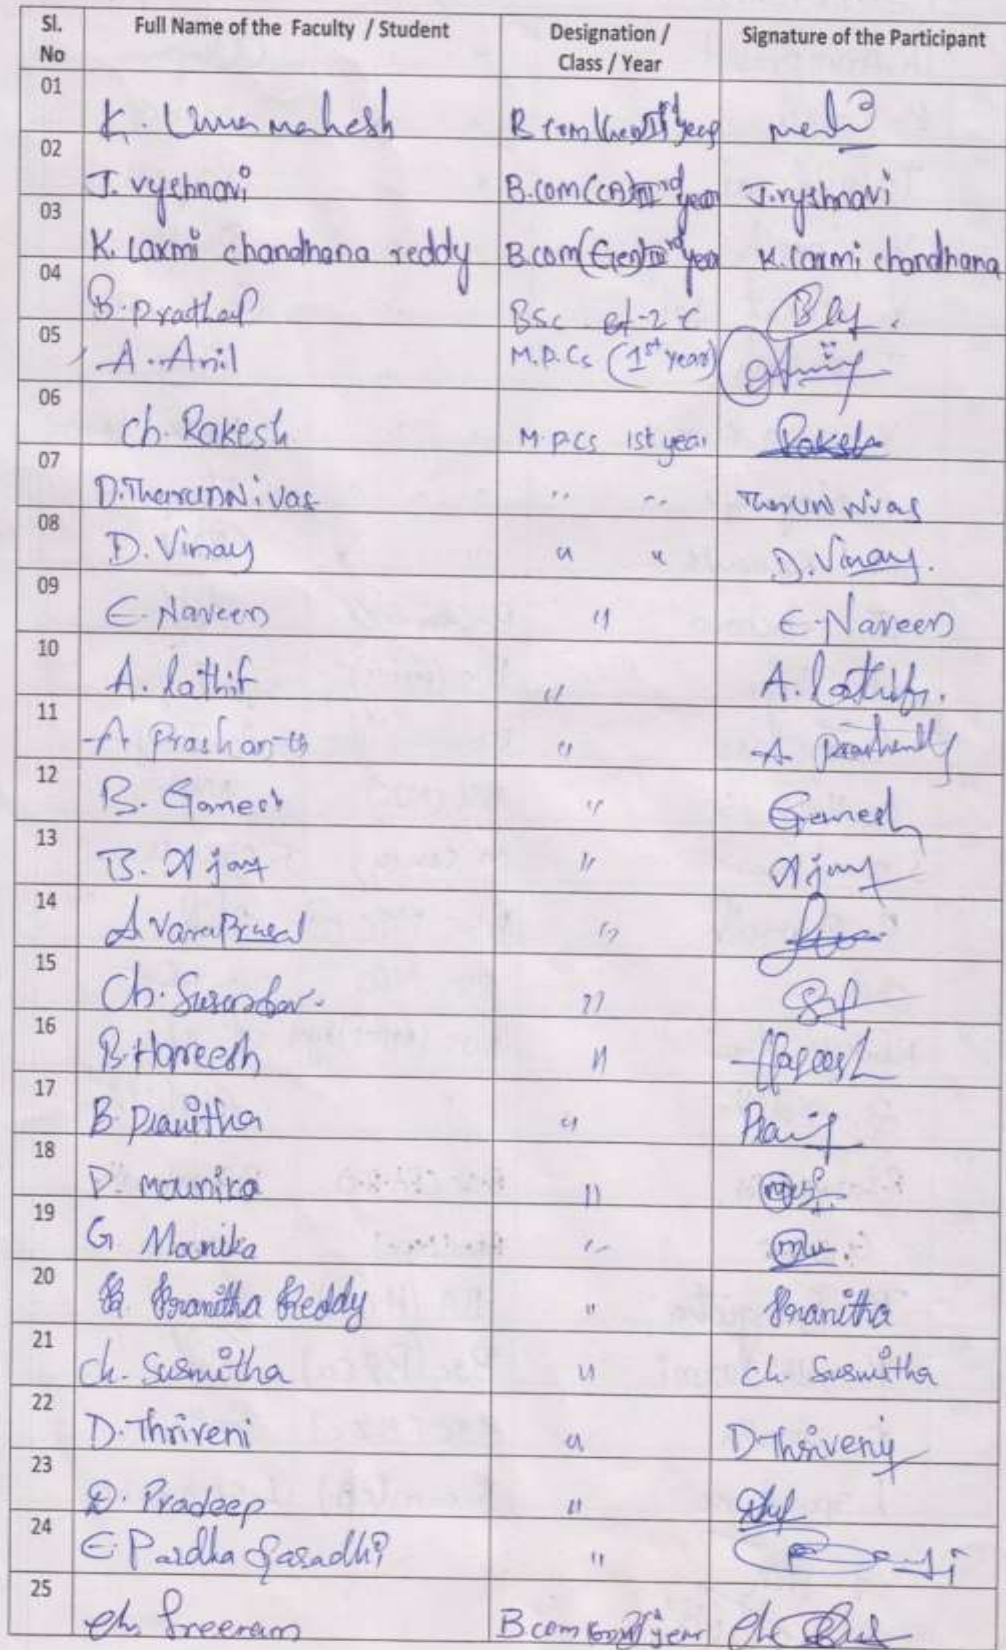 Sl. No Full Name of the Faculty / Student Designation / Class / Year Signature of the Participant
01 K. Uma mahesh B com (Gen) year
02 J. vyshnavi B.com (CA) III rd year J. vyshnavi
03 K. Laxmi chandhana reddy B.com (Gen) III rd year K. Laxmi chandhana
04 B. Prathap BSc
05 A. Anil M.P.Cs (1st year)
06 Ch. Rakesh M.P.Cs 1st year Rakesh
07 D. Tharun Nivas " " Tharun Nivas
08 D. Vinay " " D. Vinay.
09 E. Naveen " E. Naveen
10 A. Lathif " A. Lathif.
11 A Prashanth " A Prashanth
12 B. Ganesh " Ganesh
13 B. Ajay " Ajay
14 A Varaprasad "
15 Ch. Surendar. "
16 B. Hareesh " Hareesh
17 B. Pranitha "
18 D. mounika "
19 G Mounika "
20 Pranitha Reddy " Pranitha
21 ch. Susmitha " ch. Susmitha
22 D. Thriveni " D Thriveni
23 D. Pradeep "
24 E. Pardha Saradhi "
25 Ch. Sreeram B com year